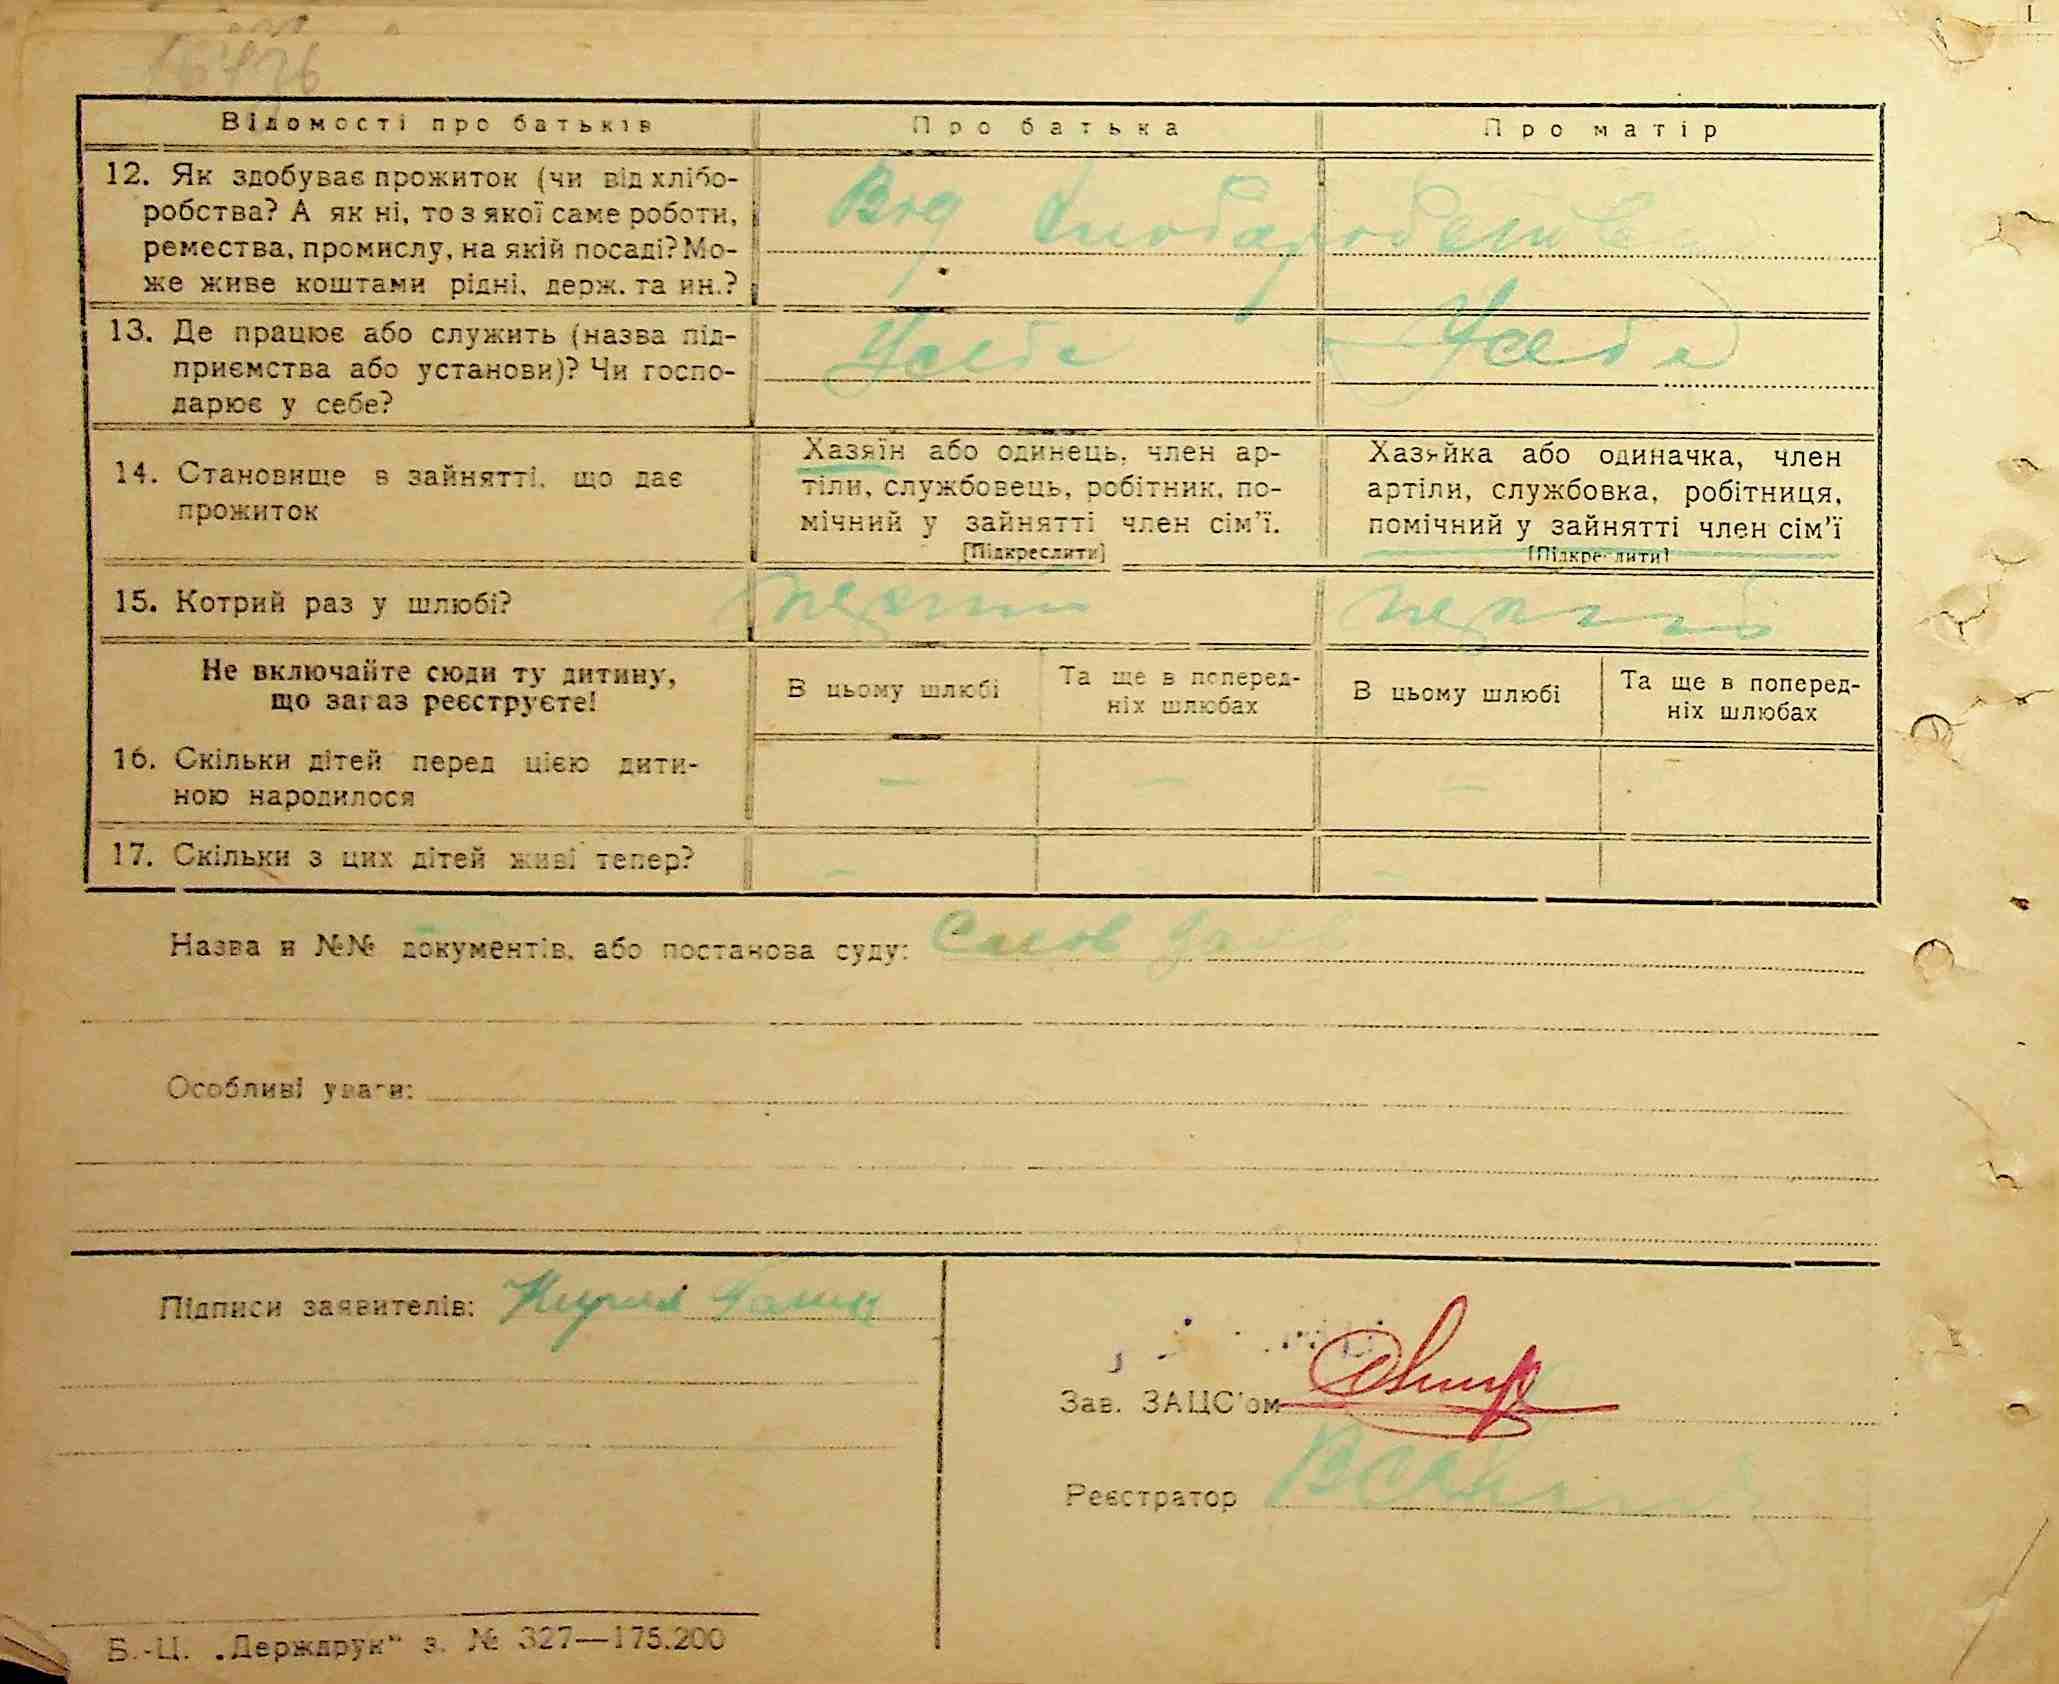 Відомості про батьків
Про батька
Про матір
12. Як здобуває прожиток (чи від хлібо-
робства? А як ні, то з якої саме роботи,
ремества, промислу, на якій посаді? Мо-
же живе коштами рідні, держ. та ин.?
Від хліборобства
13. Де працює або служить (назва під-
приємства або установи)? Чи госпо-
дарює у себе?
У себе
У себе
14. Становище в зайнятті, що дає
прожиток
Хазяїн або одинець, член ар-
тіли, службовець, робітник, по-
мічний у зайнятті член сім'ї.
[Підкреслити]
Хазяйка або одиначка, член
артіли, службовка, робітниця,
помічний у зайнятті член сім'ї
[Підкреслити]
15. Котрий раз у шлюбі?
Не включайте сюди ту дитину,
що зараз реєструєте!
В цьому шлюбі
Та ще в поперед-
ніх шлюбах
В цьому шлюбі
Та ще в поперед-
ніх шлюбах
16. Скільки дітей перед цією дити-
ною народилося
– – –
17. Скільки з цих дітей живі тепер?
– –
Назва и №№ документів, або постанова суду:
Особливі уваги:
Підписи заявителів:
Зав. ЗАЦС'ом
Реєстратор
Б.-Ц. „Держдрук“ з. № 327—175.200